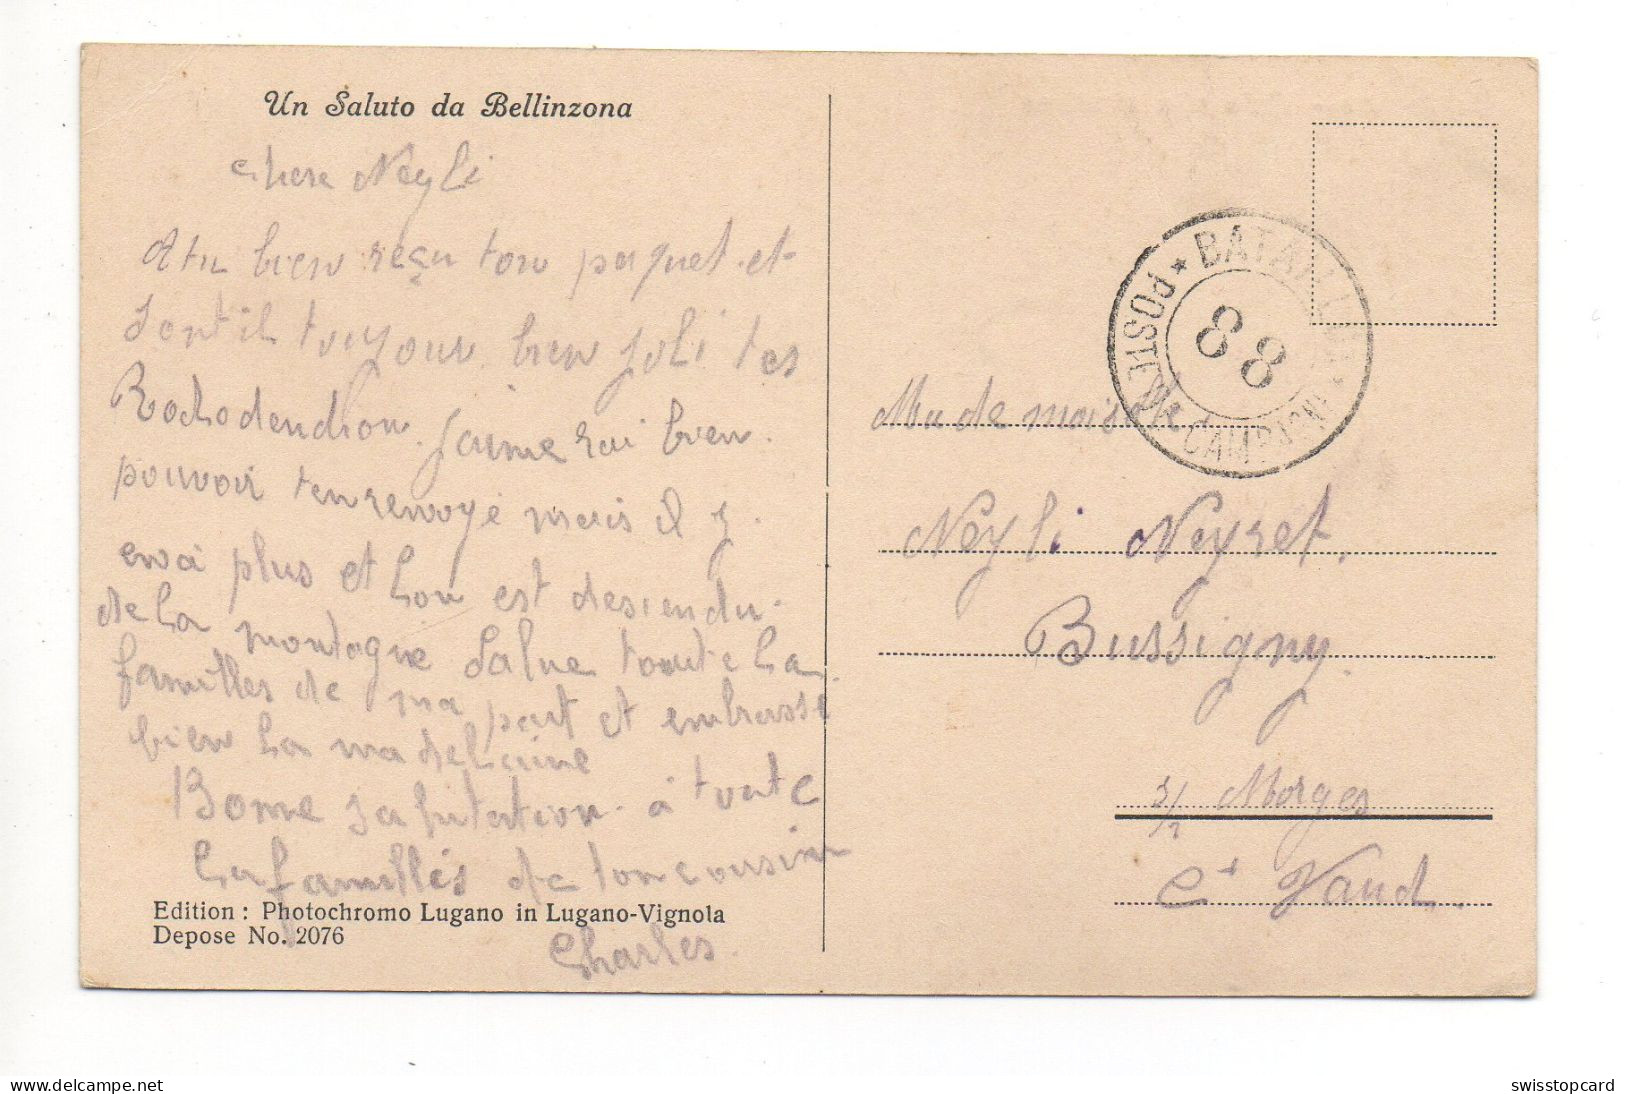 Un Saluto da Bellinzona
chere Neyli
Atu bien reçu ton paquet et
sont il toujour bien joli tes
Rododendron. J'aime rai bien
pouvoir t'en renvoyé mais il y
en a plus et Lon est descendu
de La montagne Salue toute La
familles de ma part et embrasse
bien La madelaine
Bonne salutation à toute
La familles de ton cousin
Charles.
Edition : Photochromo Lugano in Lugano-Vignola
Depose No. 2076
BATAILLON
88
POSTE DE CAMPAGNE
Made moiselle
Neyli Neyret.
Bussigny.
s/ Morges
Ct Vaud.
delcampe.net
swisstopcard